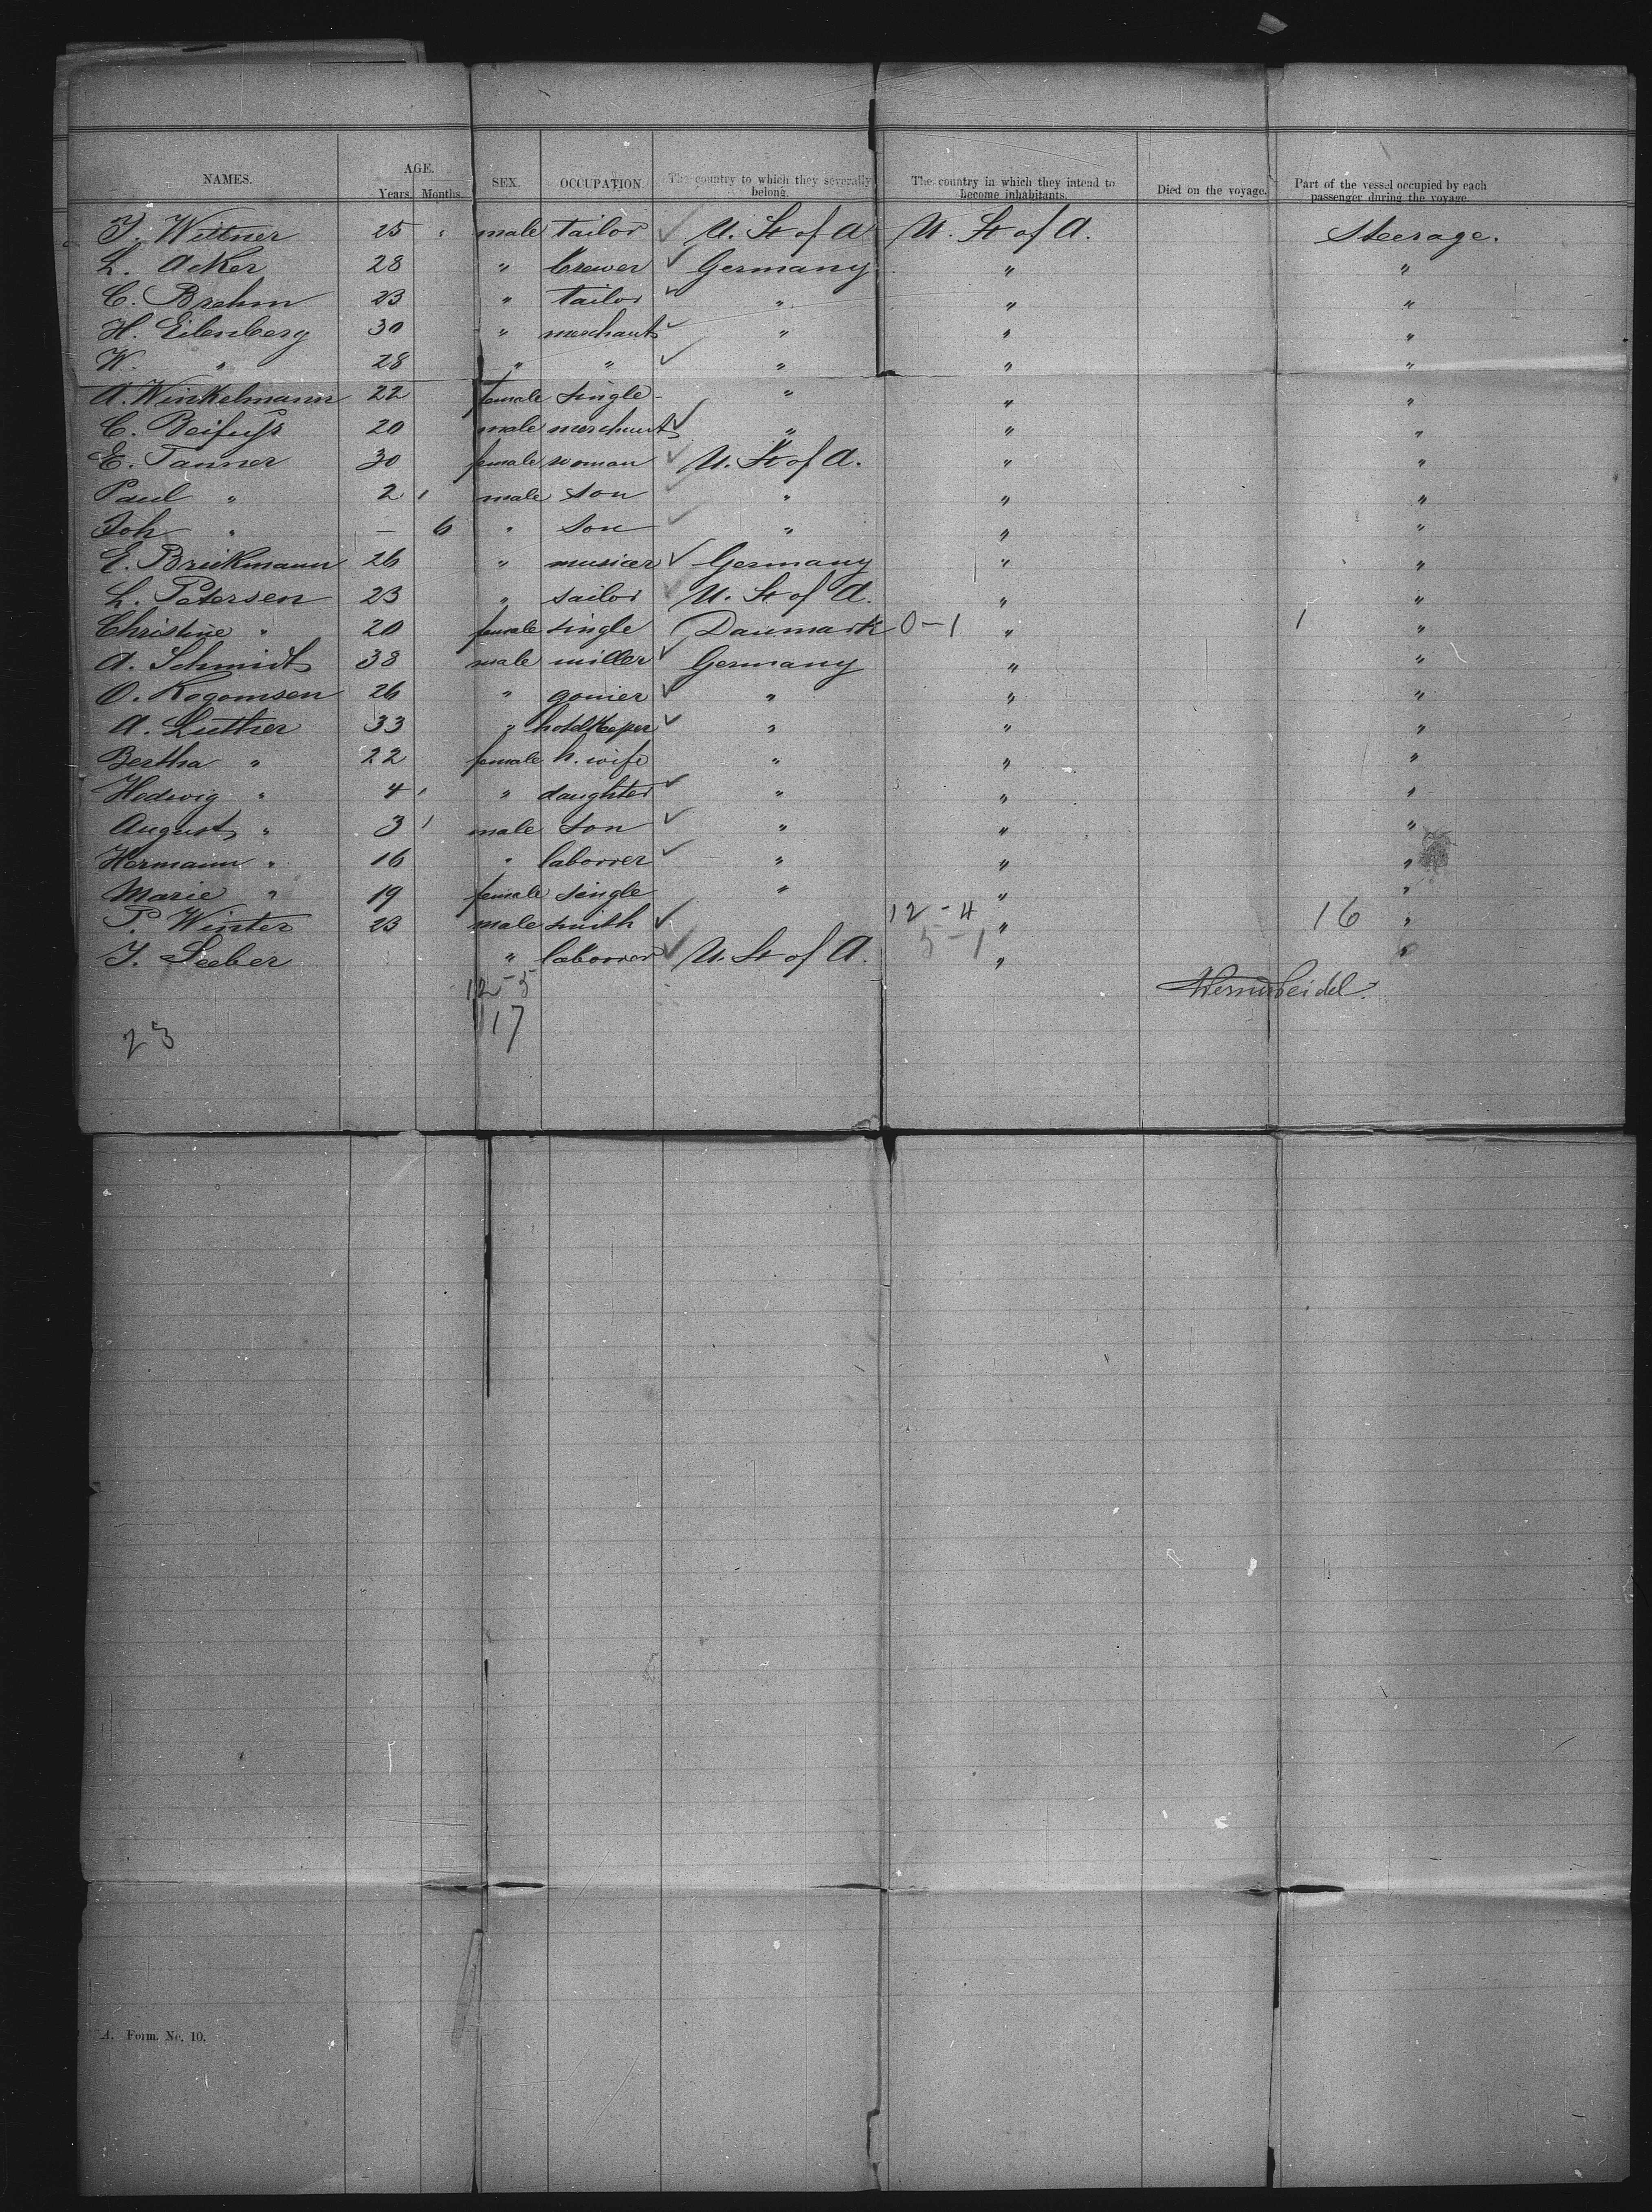 NAMES. AGE. Years. Months. SEX. OCCUPATION. The country to which they severally belong. The country in which they intend to become inhabitants. Died on the voyage. Part of the vessel occupied by each passenger during the voyage.
J. Wittner 25 " male tailor ✓ U. St of A U. St of A. Steerage.
L. Acker 28 " brewer ✓ Germany " "
C. Brehm 23 " tailor ✓ " " "
H. Eilenberg 30 " merchant ✓ " " "
W. " 28 " " ✓ " " "
A. Winkelmann 22 female single " " "
C. Beifuss 20 male merchant ✓ " " "
E. Tanner 30 female woman ✓ U. St of A. " "
Paul " 2 male son ✓ " " "
Joh " — 6 " son ✓ " " "
E. Brickmann 26 " musicer ✓ Germany " "
L. Petersen 23 " sailor ✓ U. St of A. " "
Christine " 20 female single Danmark 0-1 " 1 "
A. Schmidt 38 male miller ✓ Germany " "
O. Rogomsen 26 " ✓ " " "
A. Luther 33 " hotelkeeper ✓ " " "
Bertha " 22 female h. wife " " "
Hedwig " 4 " daughter ✓ " " "
August " 3 male son ✓ " " "
Hermann " 16 " laborrer ✓ " " "
Marie " 19 female single " " "
P. Winter 23 male smith ✓ 12-4 " 16 "
J. Seeber " laborrer ✓ U. St of A. 5-1 " "
12-5
17
23
A. Form. No. 10.